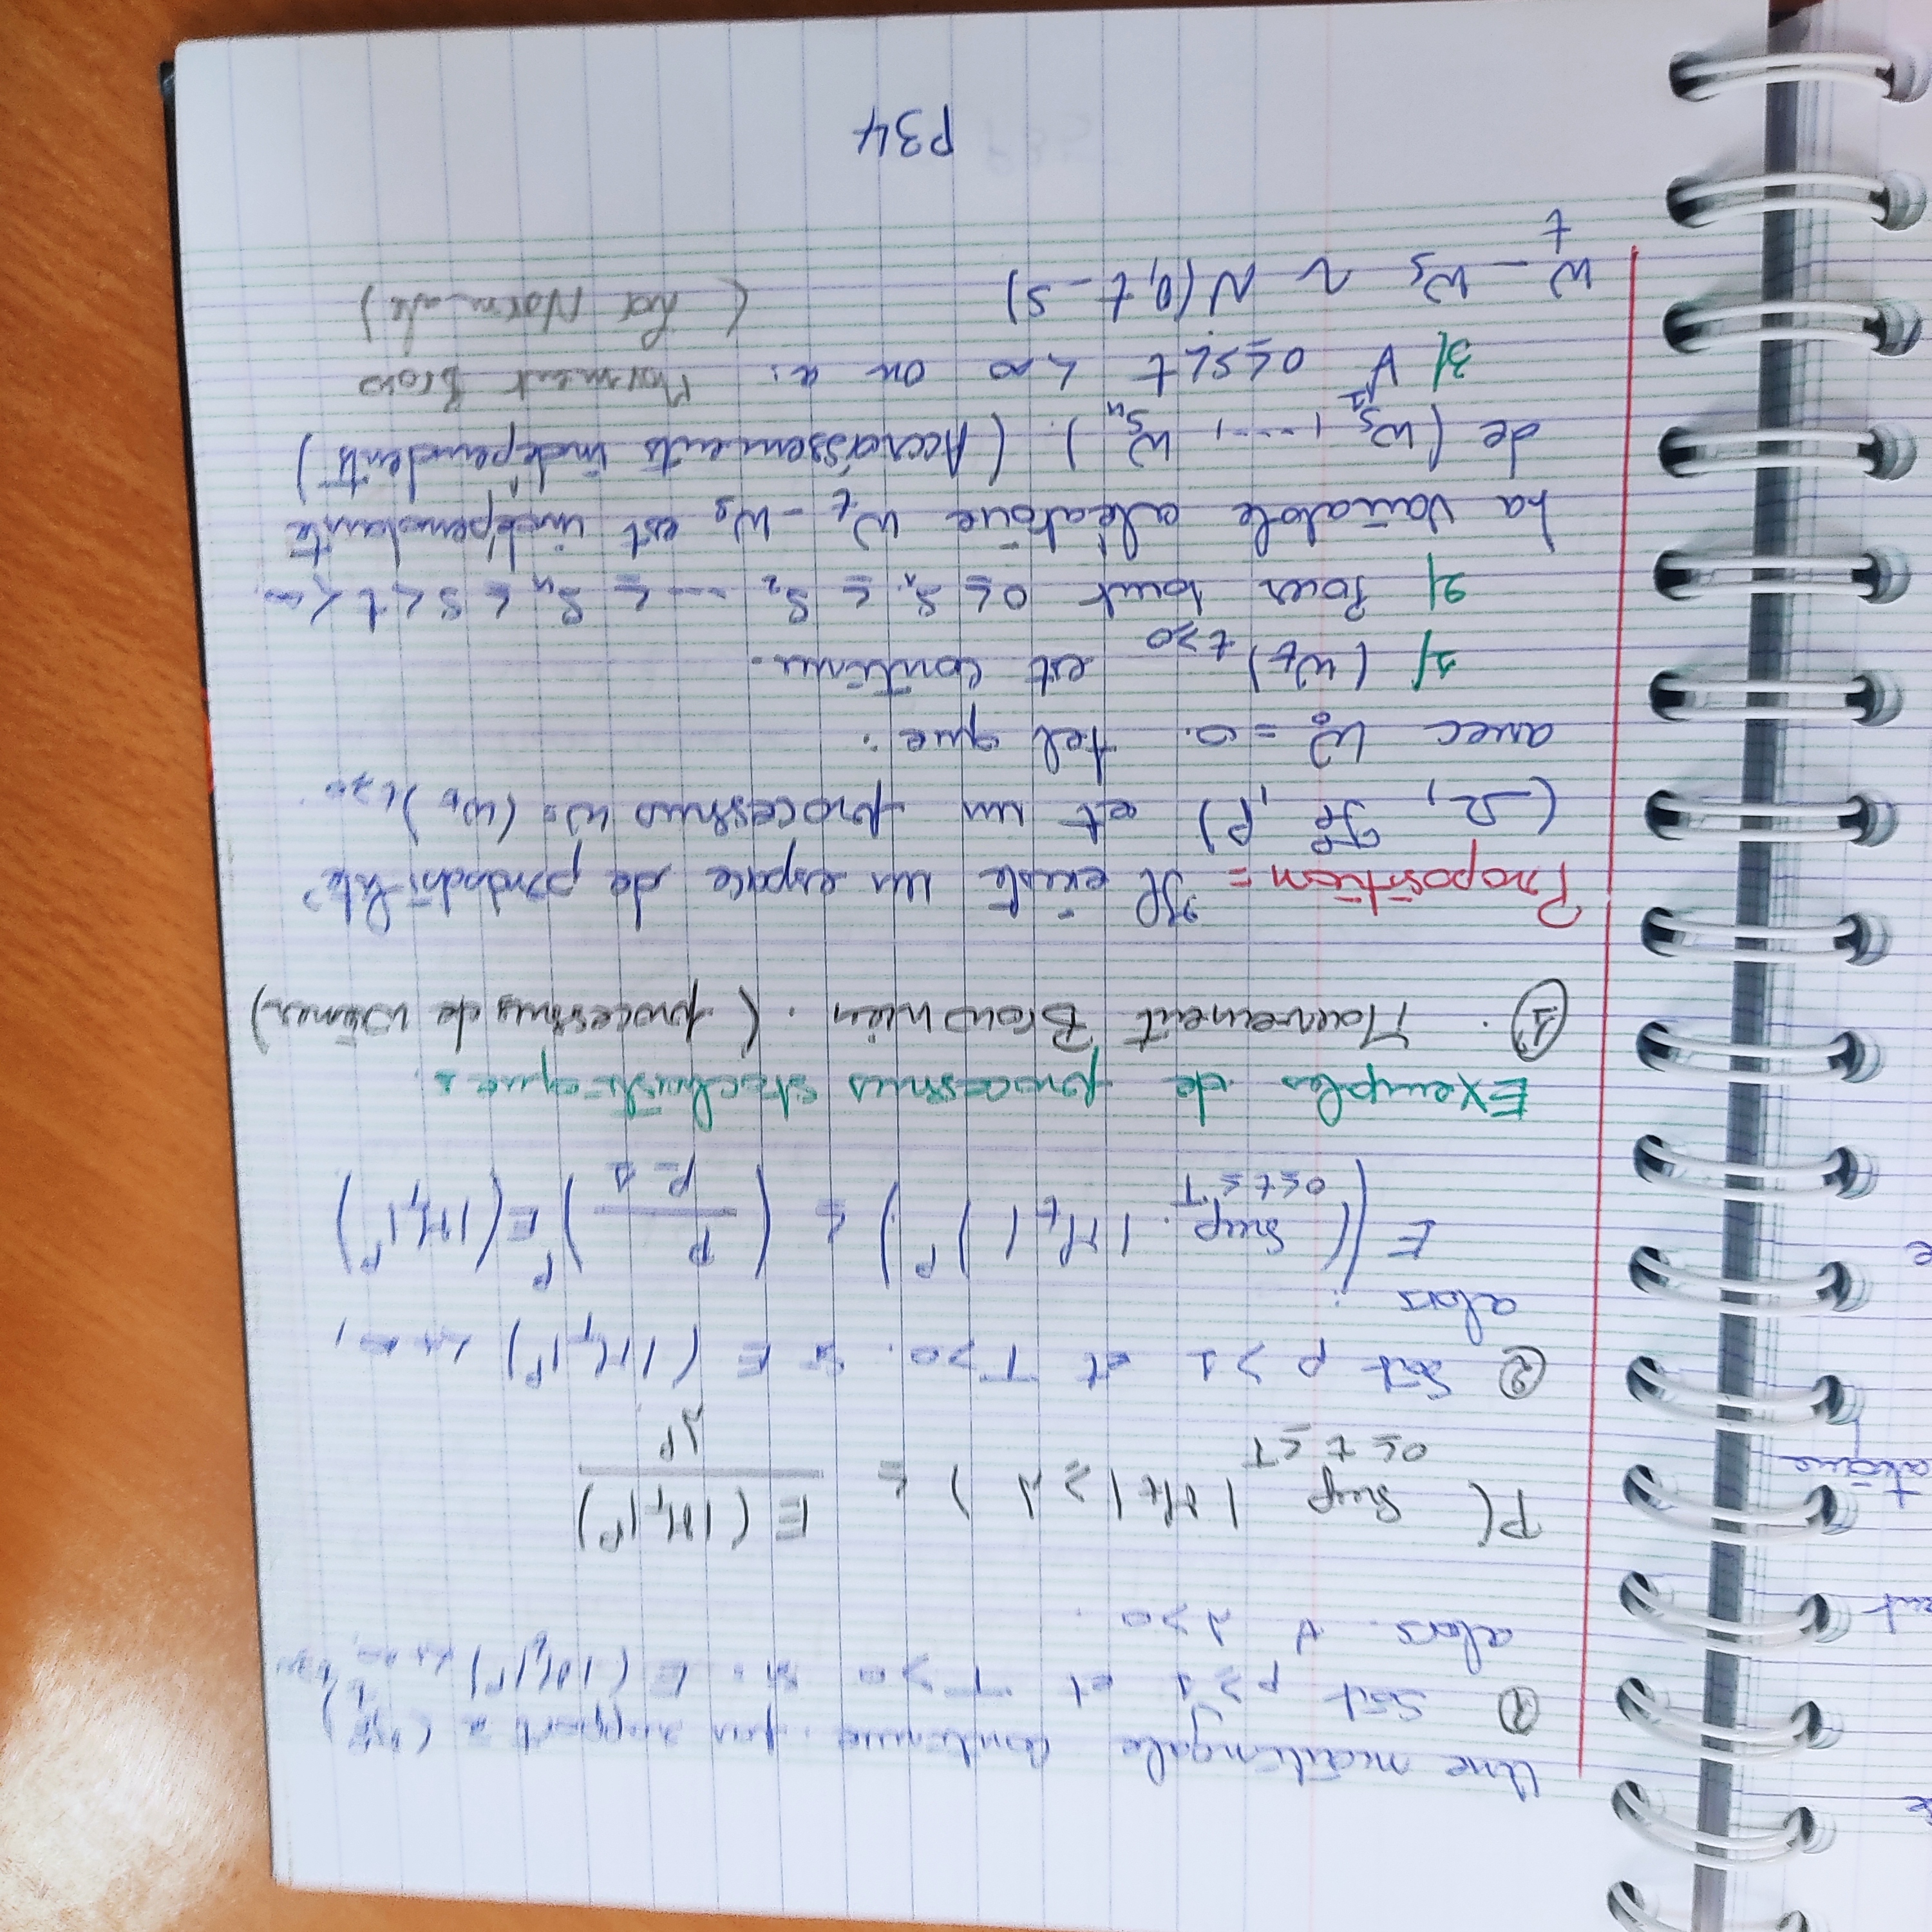 Une martingale continue par rapport à
① Soit p ≥ 1 et T > 0 si E(|M_t|^p) < +∞,
alors ∀ λ > 0.
P( sup |M_t| ≥ λ ) ≤ E(|M_T|^p) / λ^p
0 ≤ t ≤ T
② Soit p > 1 et T > 0. si E(|M_T|^p) < +∞,
alors :
E((sup |M_t|)^p) ≤ (p / p-1)^p E(|M_T|^p)
0≤t≤T
Exemples de processus stochastiques.
①. Mouvement Brownien. (processus de Wiener)
Proposition = Il existe un espace de probabilité
(Ω, , P) et un processus W= (W_t)_t≥0
avec W_0 = 0. tel que :
1/ (W_t)_t≥0 est continu.
2/ Pour tout 0 ≤ S_1 ≤ S_2 .... ≤ S_n ≤ s < t < ∞.
La variable aléatoire W_t - W_s est indépendante
de (W_S_1, ...., W_S_n). (Accroissements indépendents)
3/ ∀ 0≤s<t < ∞ on a: Movment Brow
W_t - W_s ~ N(0, t - s) (Loi Normale)
P34
ent
atoire
e